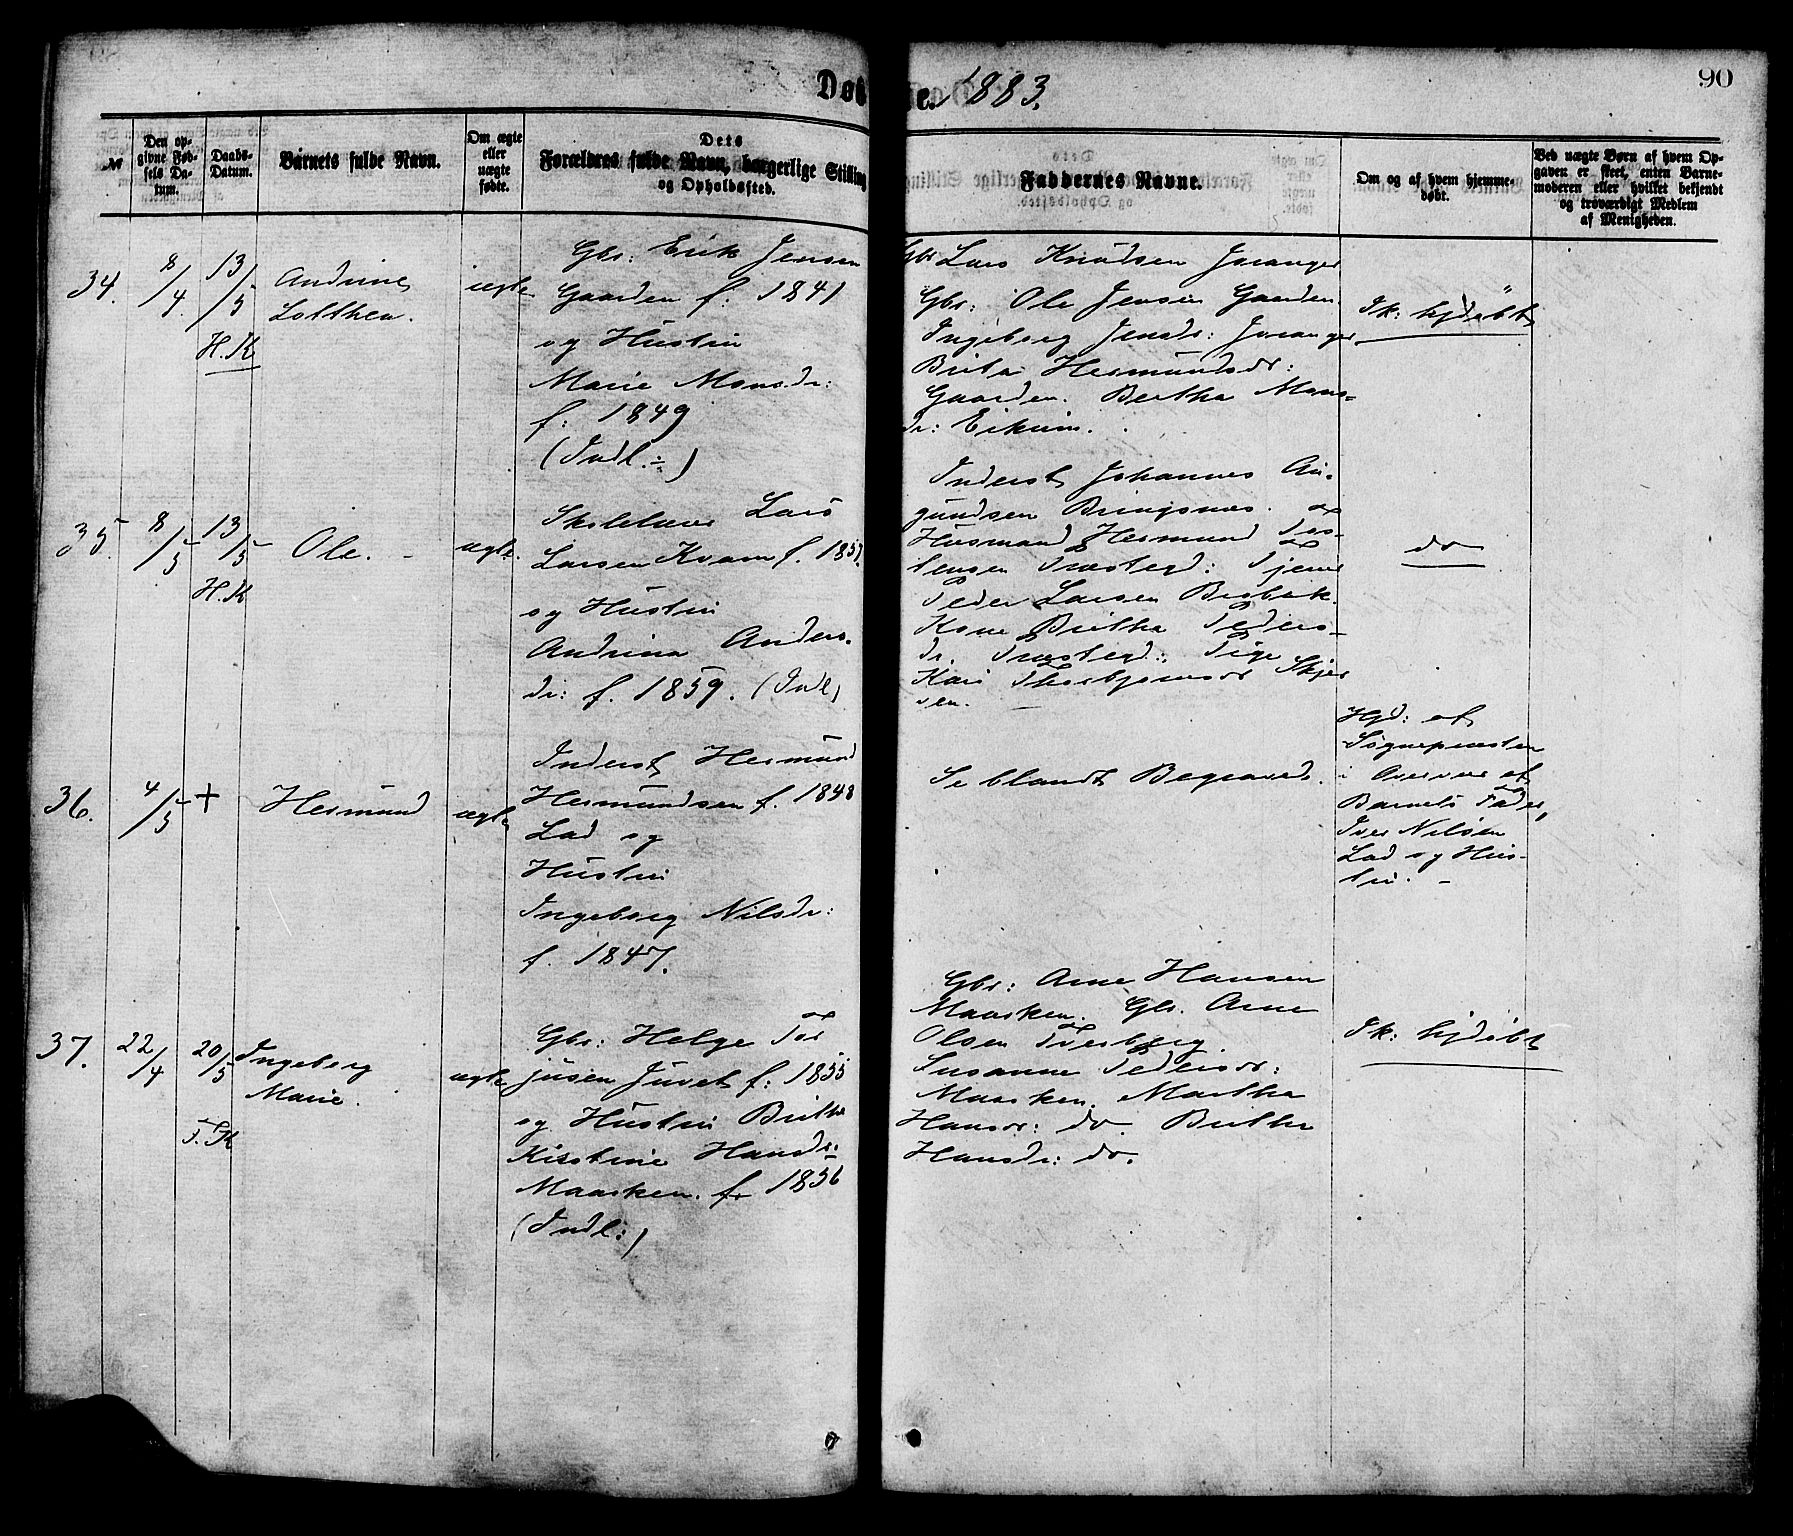 Døbte. 1883.
90
№
Den op-
givne Fød-
sels Da-
tum.
Daabs-
Datum.
Barnets fulde Navn.
Om ægte
eller
uægte
fødte.
Dets
Forældres fulde Navn, borgerlige Stilling
og Opholdssted.
Faddernes Navne.
Om og af hvem hjemme-
døbt.
Ved uægte Børn af hvem Op-
gaven er skeet, enten Barne-
moderen eller hvilket bekjendt
og troværdigt Medlem
af Menigheden.
34.
8/4.
13/5
H.K
Andrine
Lotthea.
ægte
Gbr: Erik Jensen
Gaarden f: 1841
og Hustru
Marie Monsdr:
f: 1849
(Indl.÷)
Gbr Lars Knudsen Joranger
Gbr: Ole Jensen Gaarden
Ingeborg Jensdr: Joranger
Brita Hermundsdr:
Gaarden. Bertha Mons-
dr: Eikum.
Ik: hjdøbt
35.
8/5
13/5
H.K
Ole. -
ægte
Skolelærer Lars
Larsen Kvam f. 1857.
og Hustru
Andrina Anders-
dr: f. 1859. (Indl)
Inderst Johannes Au-
gundsen Bringsnæs.
Husmand Hermund Tos-
tensen Præstegd: Tjener
Peder Larsen
Kone Britha Peders-
dr. Præstegd: Pige
Kari Thorbjørnsdr Skjer
den.
do
36.
4/5
+
Hermund
ægte
Inderst Hermund
Hermundsen f. 1848
Lad og
Hustru
Ingeborg Nilsdr:
f. 1847.
Se blandt Begravede.
Hjd: af
Sognepræsten
i Overvær af
Barnets Fader,
Iver Nilsen
Lad og Hus-
tru. -
37.
22/4
20/5
F.K
Ingeborg
Marie.
ægte
Gbr: Helge Tor
jusen Juvet f: 1855
og Hustru Britha
Kristine Hansdr:
Maasken. f. 1856
(Indl:)
Gbr: Arne Hansen
Maasken. Gbr. Arne
Olsen Tverberg
Susanne Pedersdr:
Maasken. Martha
Hansdr: do. Britha
Hansdr: do.
Ik: hjdøbt